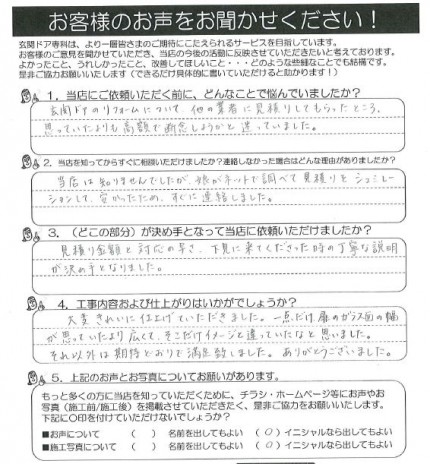 お客様のお声をお聞かせください！
玄関ドア専科は、より一層皆さまのご期待にこたえられるサービスを目指しています。
お客様のご意見を聞かせていただき、当店の今後の活動に反映させていただきたいと考えております。
よかったこと、うれしかったこと、改善してほしいこと・・・どのような些細なことでも結構です。
是非ご協力お願いいたします（できるだけ具体的に書いていただけると助かります！）
1．当店にご依頼いただく前に、どんなことで悩んでいましたか？
玄関ドアのリフォームについて、他の業者に見積りしてもらったところ、
思っていたよりも高額で断念しようかと迷っていました。
2．当店を知ってからすぐに相談いただけましたか？連絡しなかった場合はどんな理由がありましたか？
当店は知りませんでしたが、娘がネットで調べて見積りをシュミレー
ションして、安かったため、すぐに連絡しました。
3．（どこの部分）が決め手となって当店に依頼いただけましたか？
見積り金額と対応の早さ、下見に来てくださった時の丁寧な説明
が決め手となりました。
4．工事内容および仕上がりはいかがでしょうか？
大変きれいに仕上げていただきました。一点だけ、扉のガラス面の幅
が思っていたより広くて、そこだけイメージと違っていたなと思いました。
それ以外は期待どおりで満足致しました。ありがとうございました。
5．上記のお声とお写真についてお願いがあります。
もっと多くの方に当店を知っていただくために、チラシ・ホームページ等にお声やお
写真（施工前/施工後）を掲載させていただきたく、是非ご協力をお願いいたします。
下記に〇印を付けていただけないでしょうか？
■お声について （　） 名前を出してもよい （〇）イニシャルなら出してもよい
■施工写真について （　） 名前を出してもよい （〇）イニシャルなら出してもよい